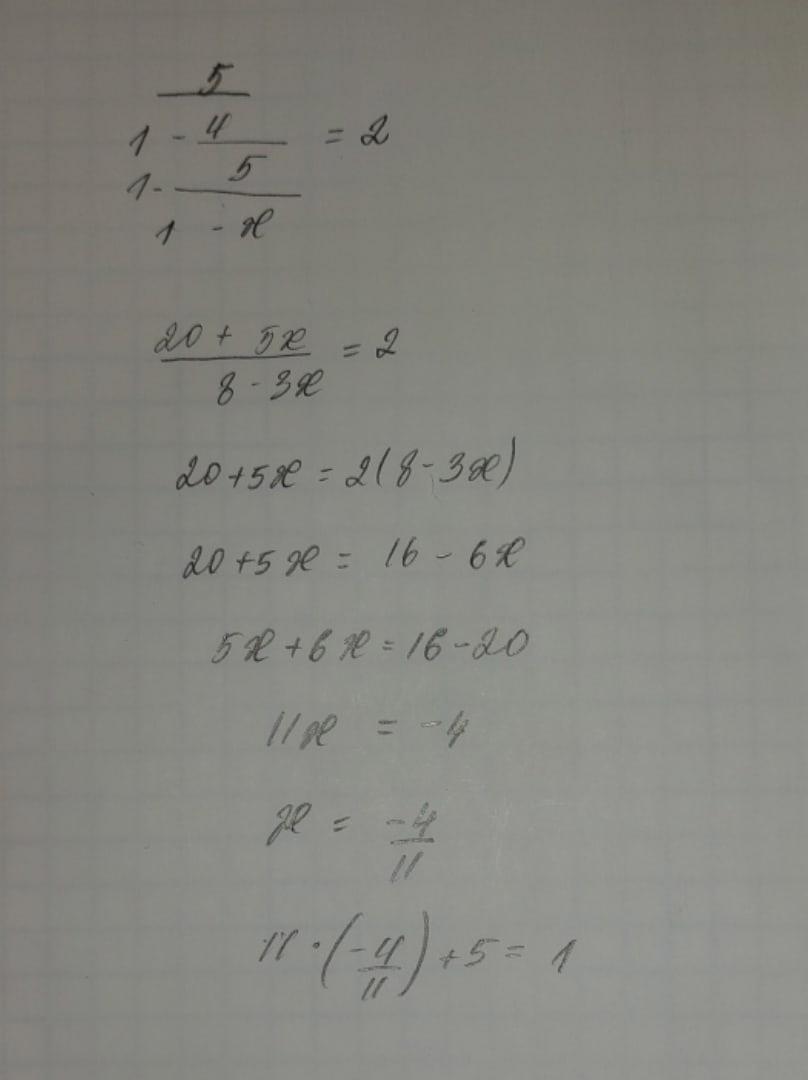 5
1 - 4 = 2
1 - 5
1 - x
20 + 5x / 8 - 3x = 2
20 + 5x = 2(8 - 3x)
20 + 5x = 16 - 6x
5x + 6x = 16 - 20
11x = -4
x = -4/11
11 · (-4/11) + 5 = 1